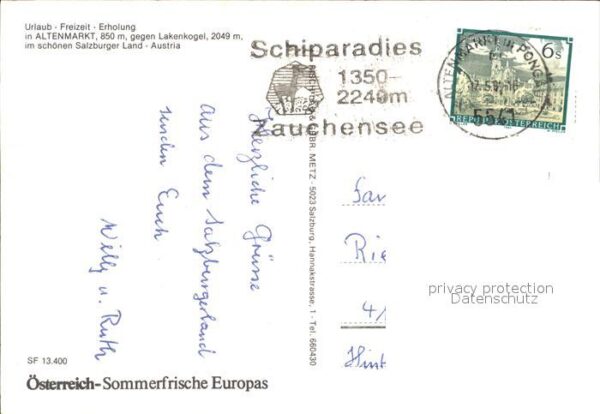 Urlaub · Freizeit · Erholung
in ALTENMARKT, 850 m, gegen Lakenkogel, 2049 m,
im schönen Salzburger Land · Austria
Schiparadies
1350–
2240m
Zauchensee
ALTENMARKT IM PONGAU
5541
6s
REPUBLIK ÖSTERREICH
Herzliche Grüsse
aus dem Salzburgerland
senden Euch
Willy u. Ruth
GEBR. METZ - 5023 Salzburg, Hannakstrasse, 1 - Tel. 660430
Fam
Rie
4/
Hint
privacy protection
Datenschutz
SF 13.400
Österreich-Sommerfrische Europas